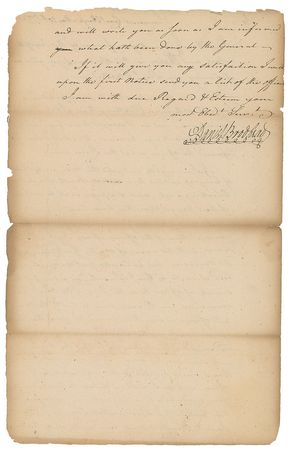 and will write you as soon as I am informed
what hath been done by the General
If it will give you any Satisfaction I will
upon the first Notice send you a list of the offic
I am with due Regard & Esteem your
most Obedt Servt
Danl Brodhead